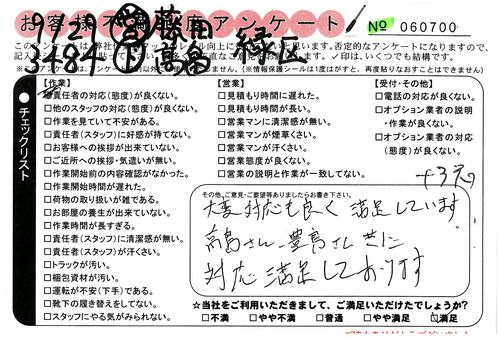 お客様不満度アンケート
No 060700
9/29
3484
緑区
チェックリスト
【作業】
□責任者の対応(態度)が良くない。
□他のスタッフの対応(態度)が良くない。
□作業を見ていて不安がある。
□責任者(スタッフ)に好感が持てない。
□お客様への挨拶が出来ていない。
□ご近所への挨拶・気遣いが無い。
□作業開始前の内容確認がなかった。
□作業開始時間が遅れた。
□荷物の取り扱いが雑である。
□お部屋の養生が出来ていない。
□作業時間が長すぎる。
□責任者(スタッフ)に清潔感が無い。
□責任者(スタッフ)が汗くさい。
□トラックが汚い。
□梱包資材が汚い。
□運転が不安(下手)である。
□靴下の履き替えをしてない。
□スタッフにやる気がみられない。
【営業】
□見積もり時間に遅れた。
□見積もり時間が長い。
□営業マンに清潔感が無い。
□営業マンが煙草くさい。
□営業マンが汗くさい。
□営業態度が良くない。
□営業の説明と作業が一致してない。
【受付・その他】
□電話の対応が良くない。
□オプション業者の説明
・作業が良くない。
□オプション業者の対応
(態度)が良くない。
その他、ご意見・ご要望等ありましたらお書き下さい。
大変対応も良く 満足しています
高畠さん、豊島さん 共に
対応 満足しております
☆当社をご利用いただきまして、ご満足いただけたでしょうか?
□不満 □やや不満 □普通 □やや満足 □満足